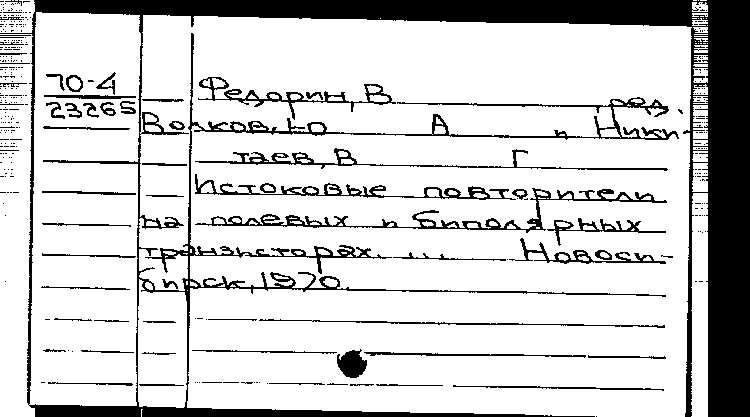 70-4
23265
Федорин, В ред.
Волков, Ю А и Ники-
таев, В Г
Истоковые повторители
на полевых и биполярных
транзисторах. ... Новоси-
бирск, 1970.